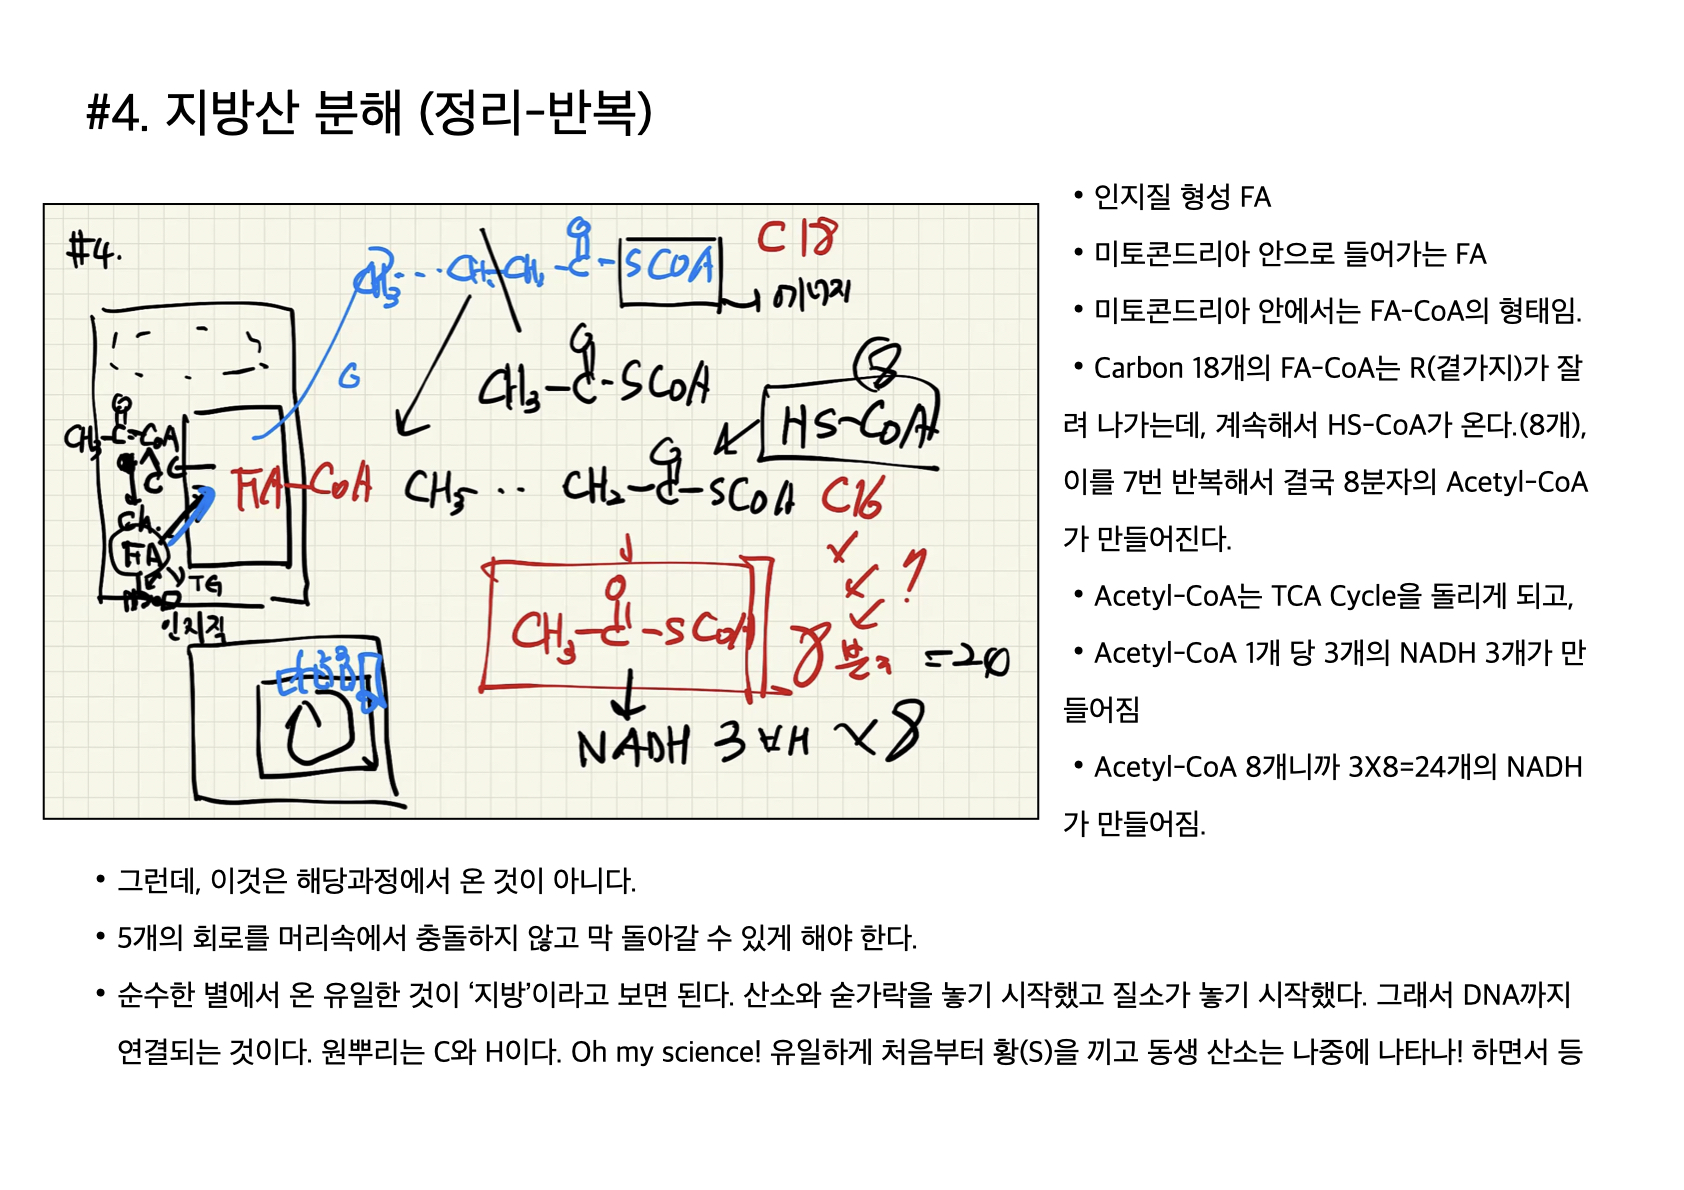 #4. 지방산 분해 (정리-반복)
#4.
CH3 --- CH2 CH2 - C - SCOA
O
C 18
에너지
O
CH3 - C - SCOA
G
8
HS-COA
O
CH3 - C - COA
FA-COA
CH3 - ·· CH2 - C - SCOA
O
C16
FA
TG
인지질
O
CH3 - C - SCOA
8분자
?
=24
NADH 3개 × 8
• 인지질 형성 FA
• 미토콘드리아 안으로 들어가는 FA
• 미토콘드리아 안에서는 FA-CoA의 형태임.
• Carbon 18개의 FA-CoA는 R(곁가지)가 잘
려 나가는데, 계속해서 HS-CoA가 온다.(8개),
이를 7번 반복해서 결국 8분자의 Acetyl-CoA
가 만들어진다.
• Acetyl-CoA는 TCA Cycle을 돌리게 되고,
• Acetyl-CoA 1개 당 3개의 NADH 3개가 만
들어짐
• Acetyl-CoA 8개니까 3X8=24개의 NADH
가 만들어짐.
• 그런데, 이것은 해당과정에서 온 것이 아니다.
• 5개의 회로를 머리속에서 충돌하지 않고 막 돌아갈 수 있게 해야 한다.
• 순수한 별에서 온 유일한 것이 ‘지방’이라고 보면 된다. 산소와 숟가락을 놓기 시작했고 질소가 놓기 시작했다. 그래서 DNA까지
연결되는 것이다. 원뿌리는 C와 H이다. Oh my science! 유일하게 처음부터 황(S)을 끼고 동생 산소는 나중에 나타나! 하면서 등